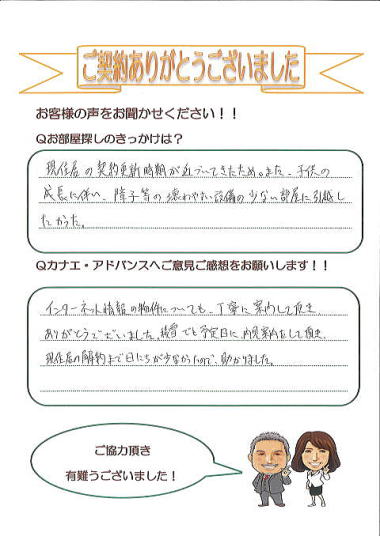 ご契約ありがとうございました
お客様の声をお聞かせください！！
Qお部屋探しのきっかけは？
現住居の契約更新時期が近づいてきたため。また、子供の
成長に伴い、障子等の壊わやすい設備の少ない部屋に引越し
たかった。
Qカナエ・アドバンスへご意見ご感想をお願いします！！
インターネット情報の物件についても、丁寧に案内して頂き
ありがとうございました。積雪でも予定日に内見案内をして頂き、
現住居の解約まで日にちが少なかったので、助かりました。
ご協力頂き
有難うございました！